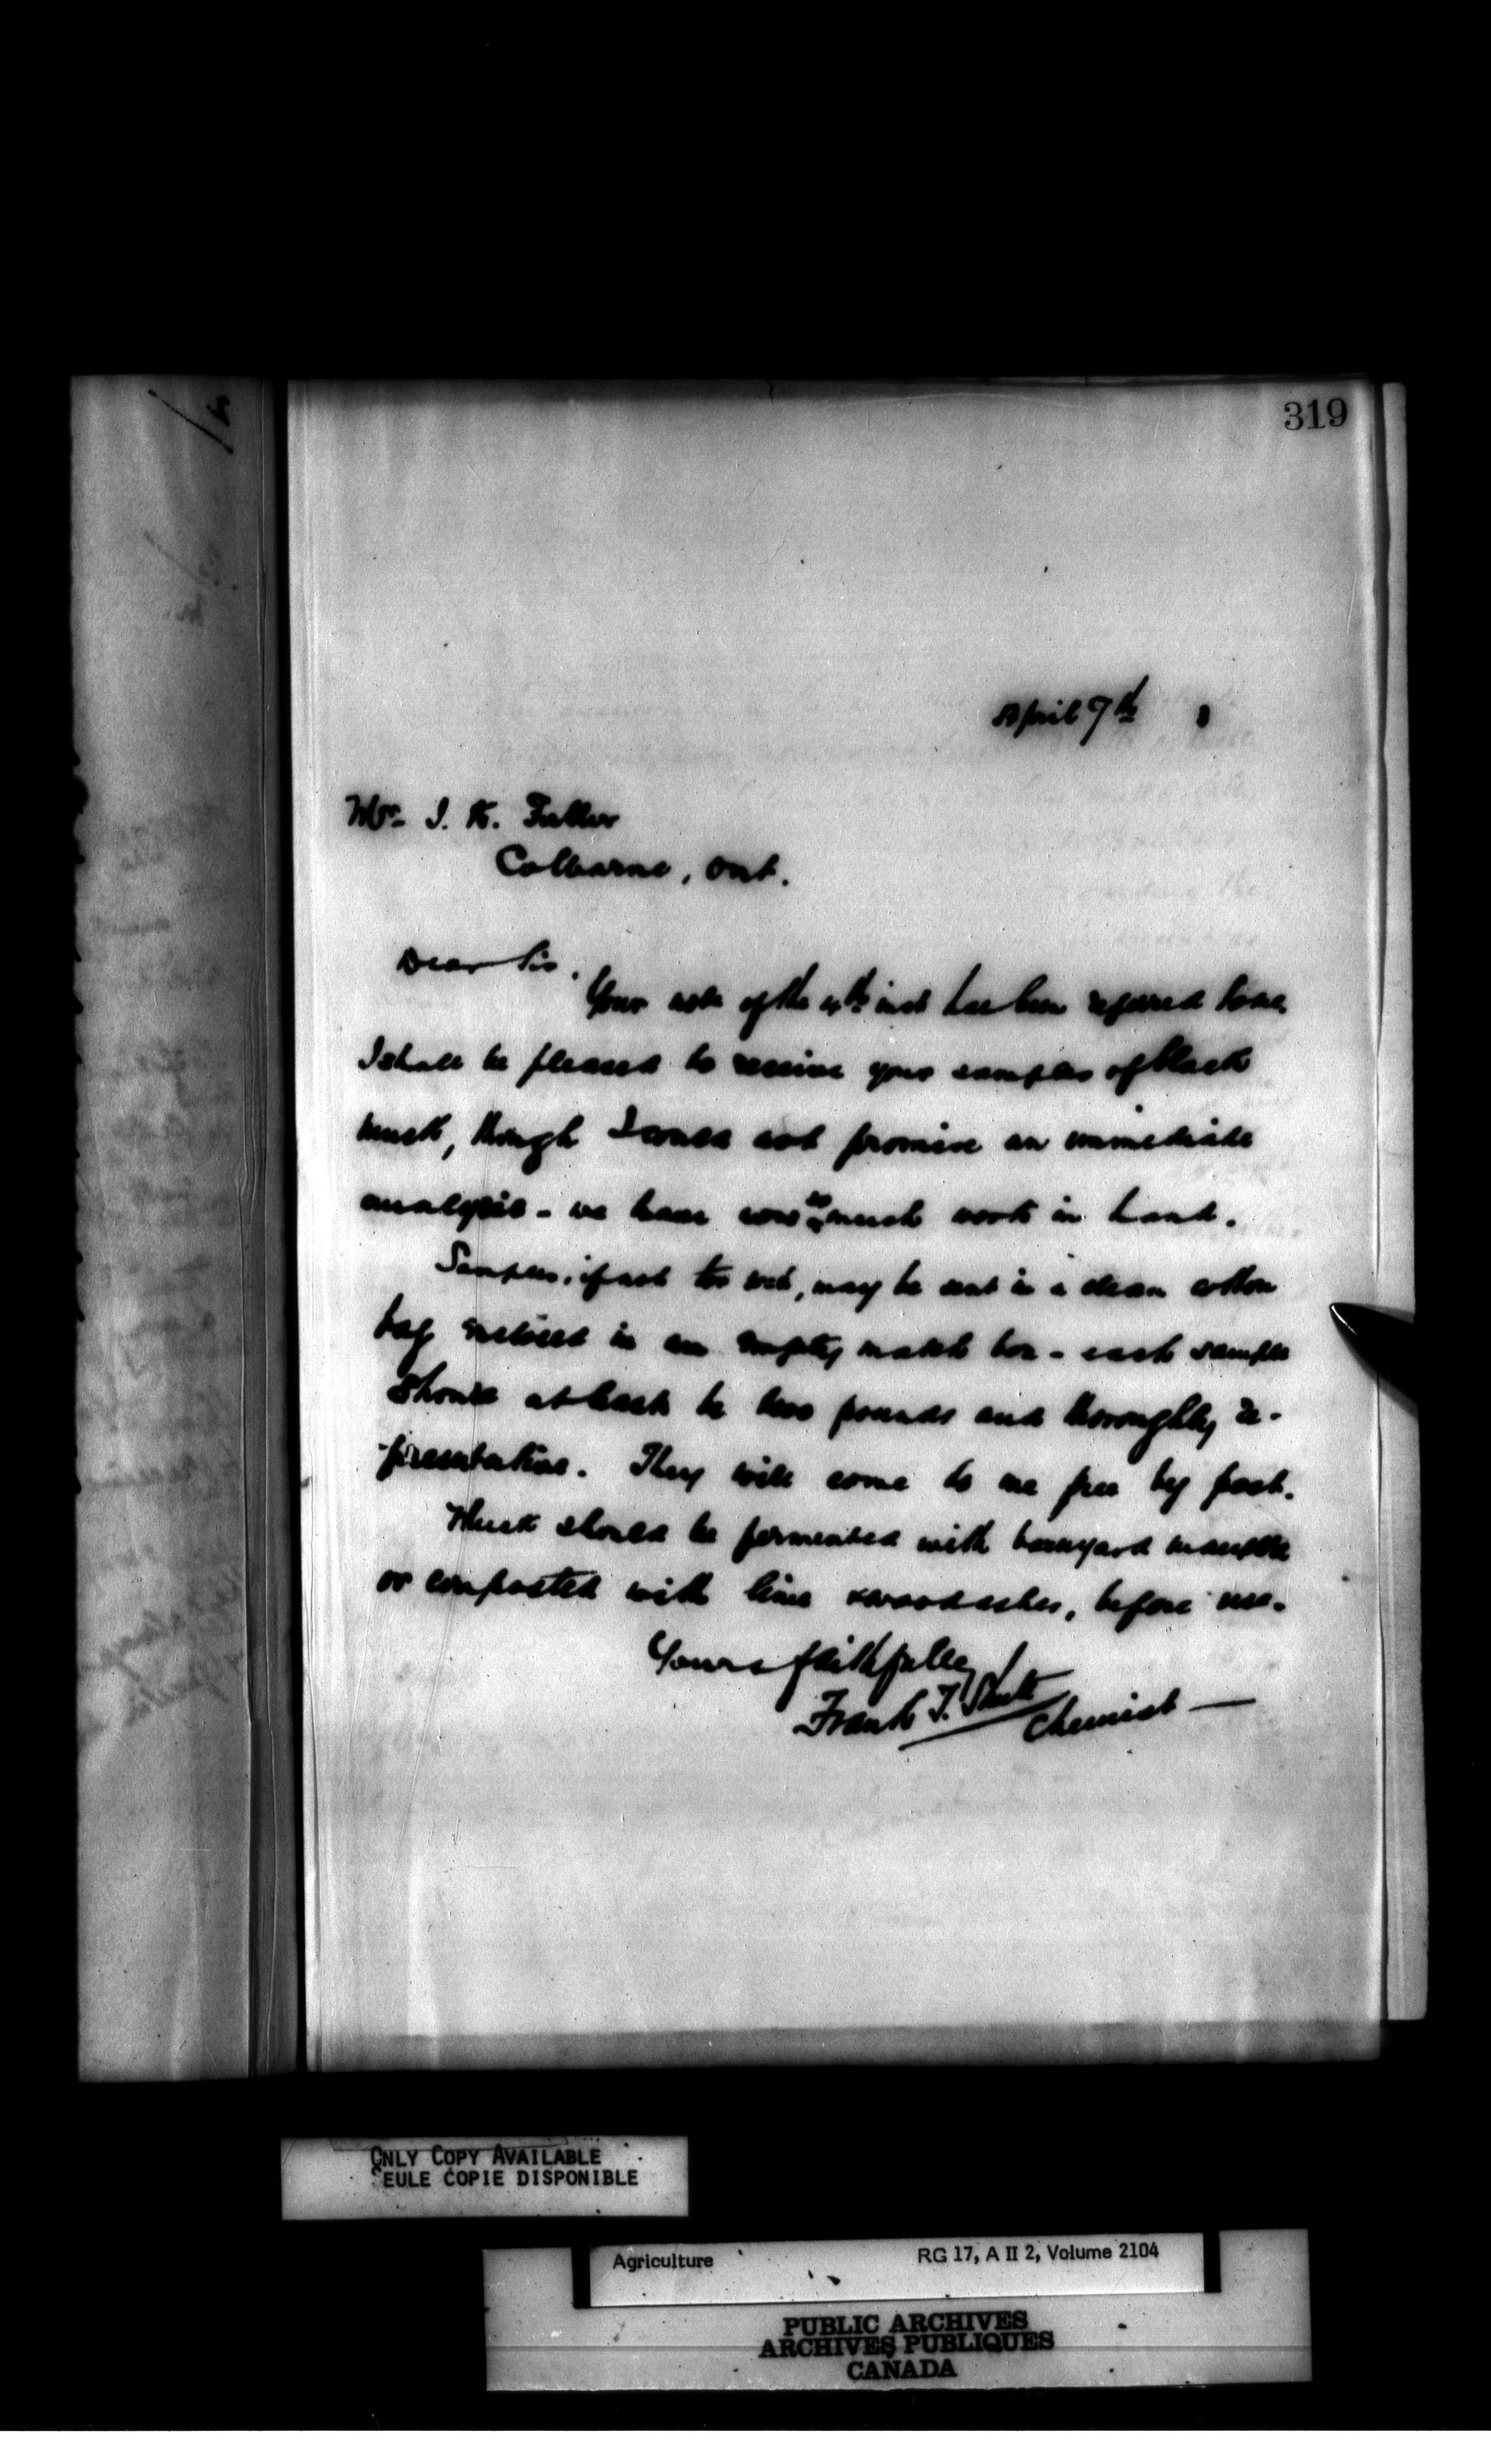 319
April 7th
Mr. I. K. Fuller
Colborne, Ont.
Dear Sir.
Your note of the 4th inst has been referred to me.
I shall be pleased to receive your samples of black
muck, though I could not promise an immediate
analysis - we have now so much work in hand.
Samples, if not too wet, may be sent in a clean cotton
bag enclosed in an empty match box - each sample
should at least be two pounds and thoroughly re-
-presentative. They will come to me free by post.
Muck should be fermented with barnyard manure
or composted with lime & wood ashes, before use.
Yours faithfully
Frank T. Shutt
Chemist
ONLY COPY AVAILABLE
EULE COPIE DISPONIBLE
Agriculture RG 17, A II 2, Volume 2104
PUBLIC ARCHIVES
ARCHIVES PUBLIQUES
CANADA